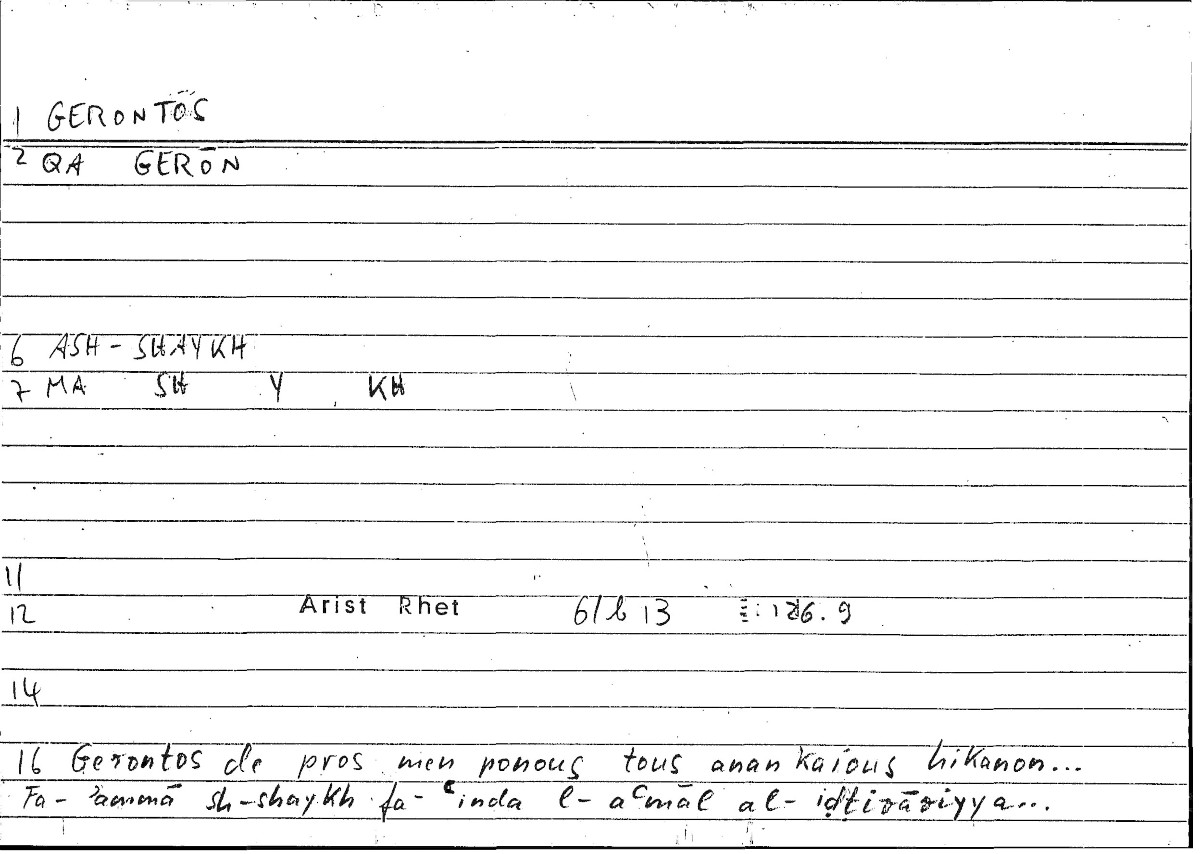 1 GERONTOS
2 QA GERŌN
6 ASH-SHAYKH
7 MA SH Y KH
11
12 Arist Rhet 61b13 : 126.9
14
16 Gerontos de pros men ponous tous anankaious hikanon...
Fa-ʾammā sh-shaykh fa-ʿinda l-aʿmāl al-iḍṭirāriyya...